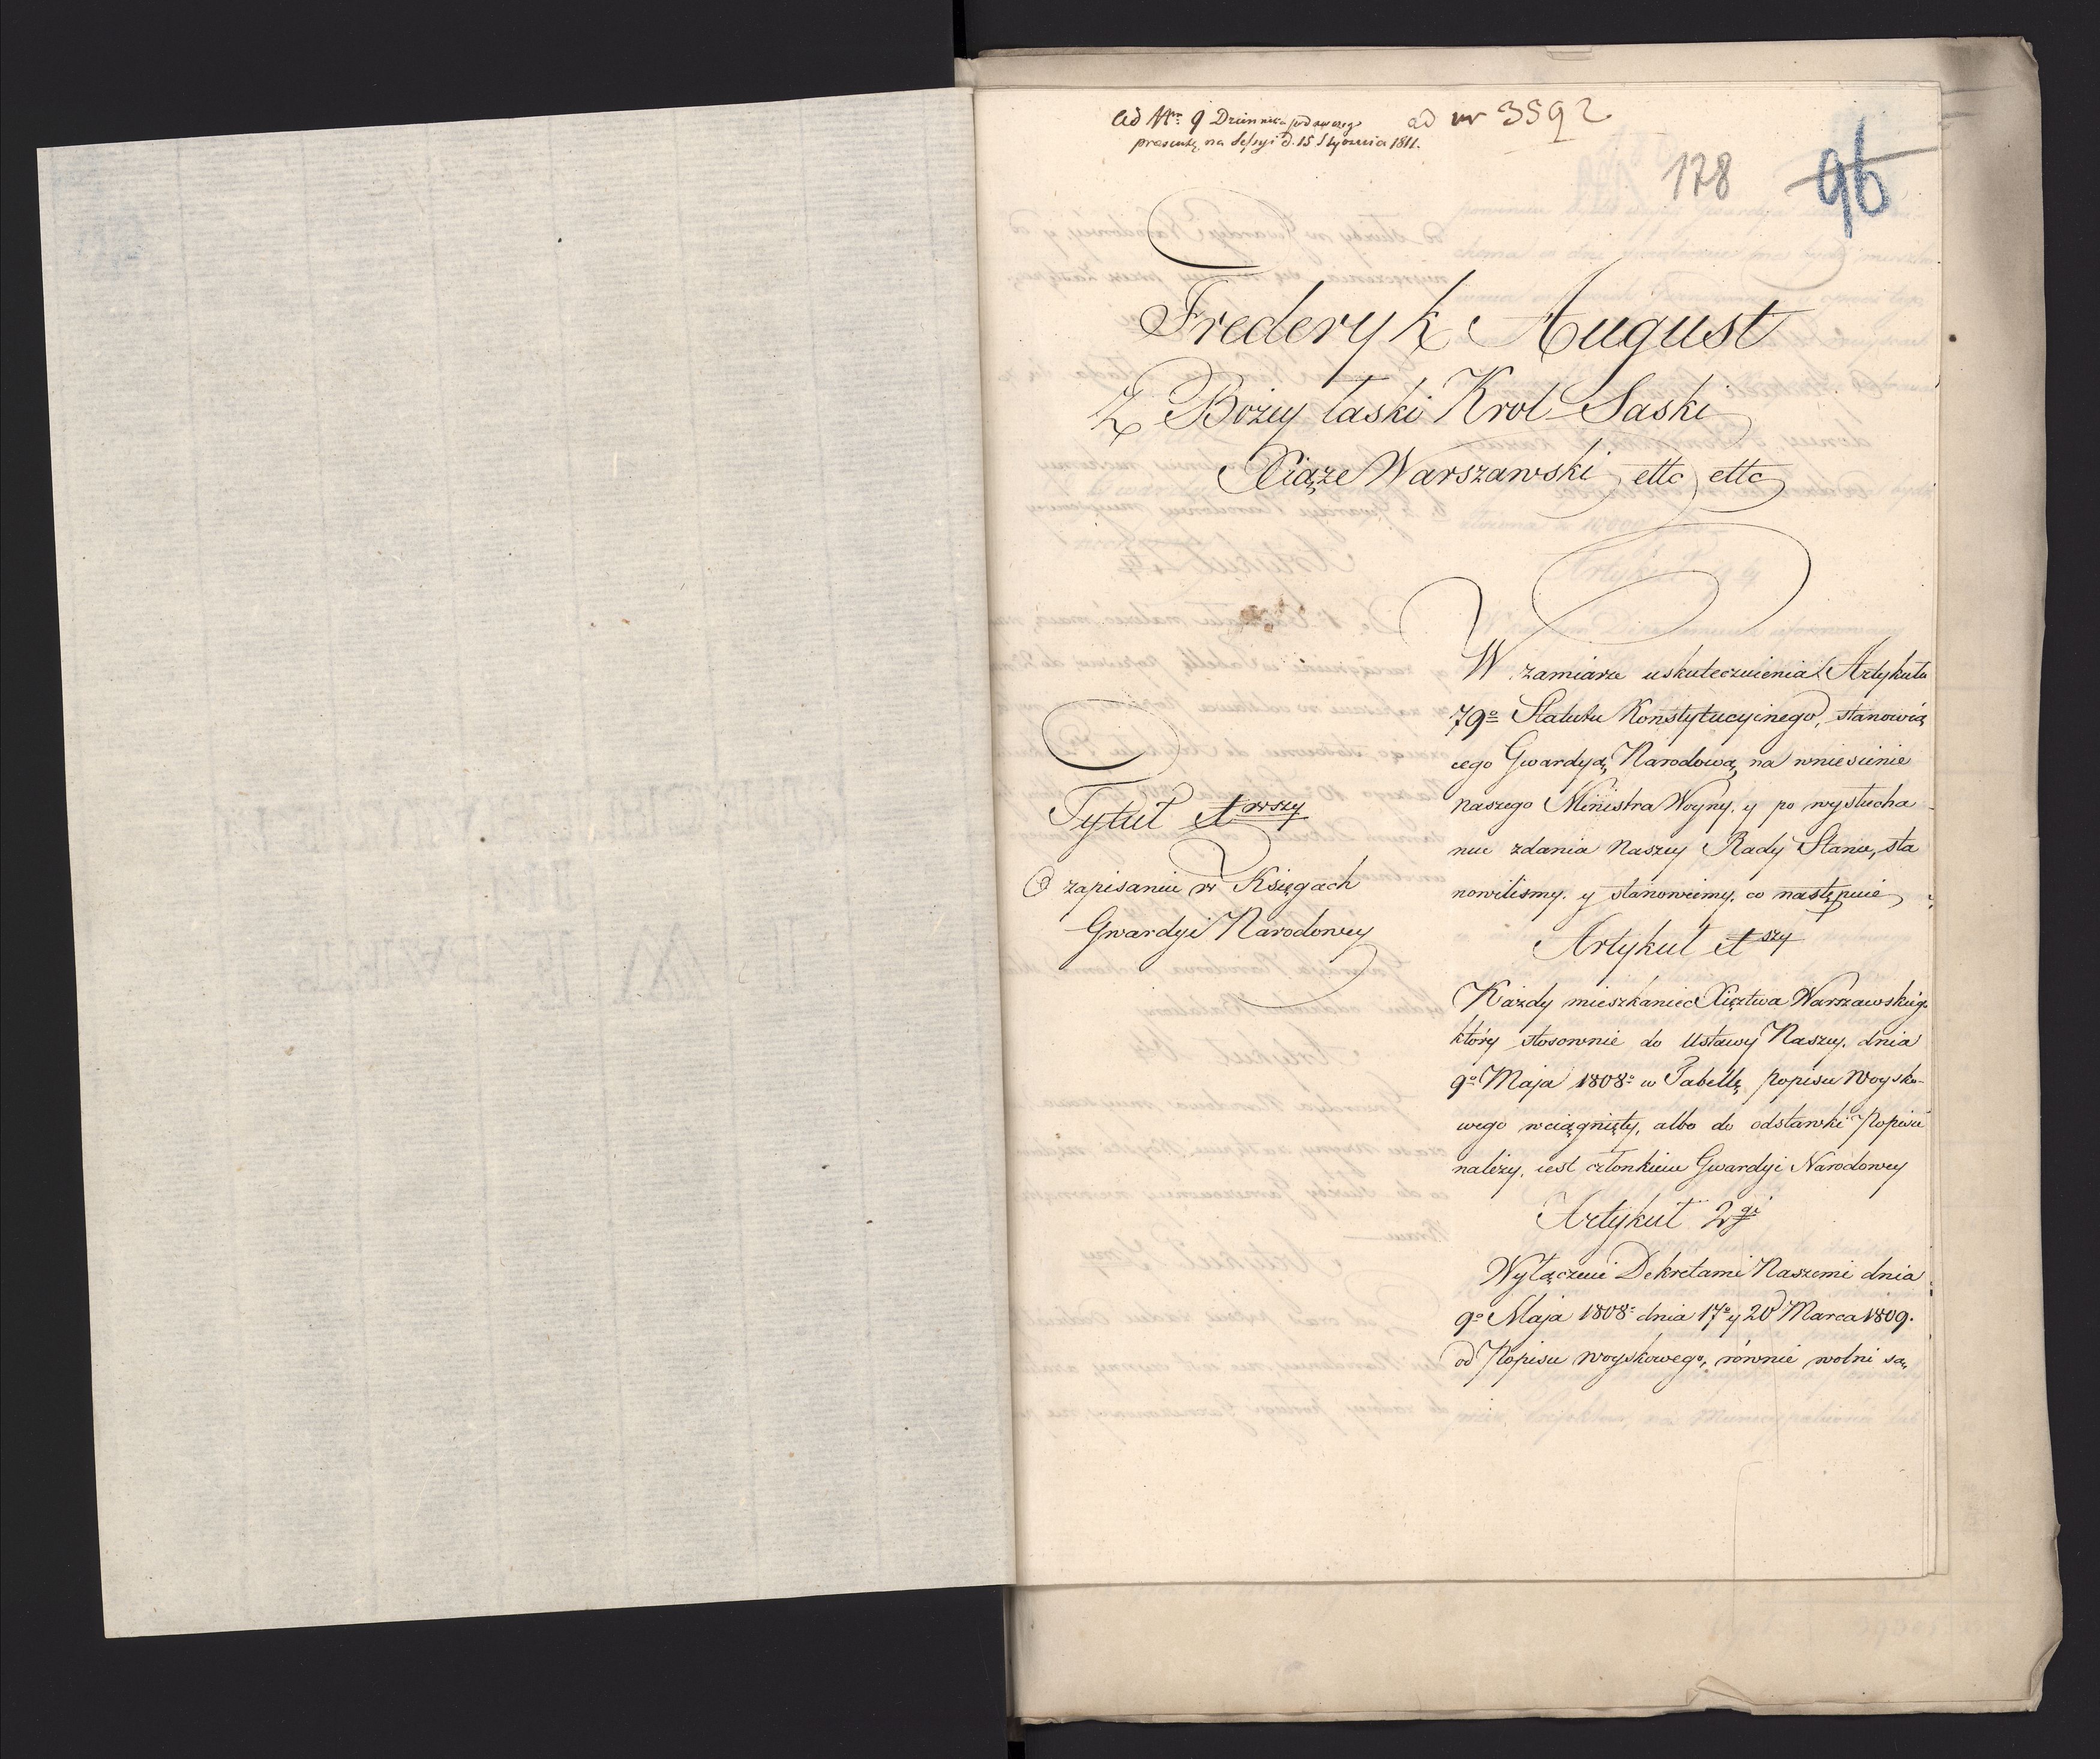 ad Nrm 9 Dziennika podawczego
ad nr 3592
prasentę na Sessyi d. 15 Stycznia 1811.
178
96
Frederyk August
Z Bożey łaski Krol Saski
Xiąże Warszawski ettc ettc
W zamiarze uskutecznienia Artykułu
79º Statutu Konstytucyinego, stanowią
cego Gwardyą Narodową, na wniesienie
naszego Ministra Woyny, y po wysłucha
niu zdania Naszey Rady Stanu, sta
nowilismy y stanowiemy, co następuie
Tytuł 1wszy
O zapisaniu w Księgach
Gwardyi Narodowey
Artykuł 1szy
Każdy mieszkaniec Xięztwa Warszawskiego
który stosownie do Ustawy Naszey, dnia
9º Maja 1808º w Tabellę popisu Woysko-
wego wciągnięty, albo do odstawki Popisu
należy, iest członkiem Gwardyi Narodowey
Artykuł 2gi
Wyłączeni Dekretami Naszemi dnia
9º Maja 1808º dnia 17º y 20 Marca 1809.
od Popisu woyskowego, równie wolni są